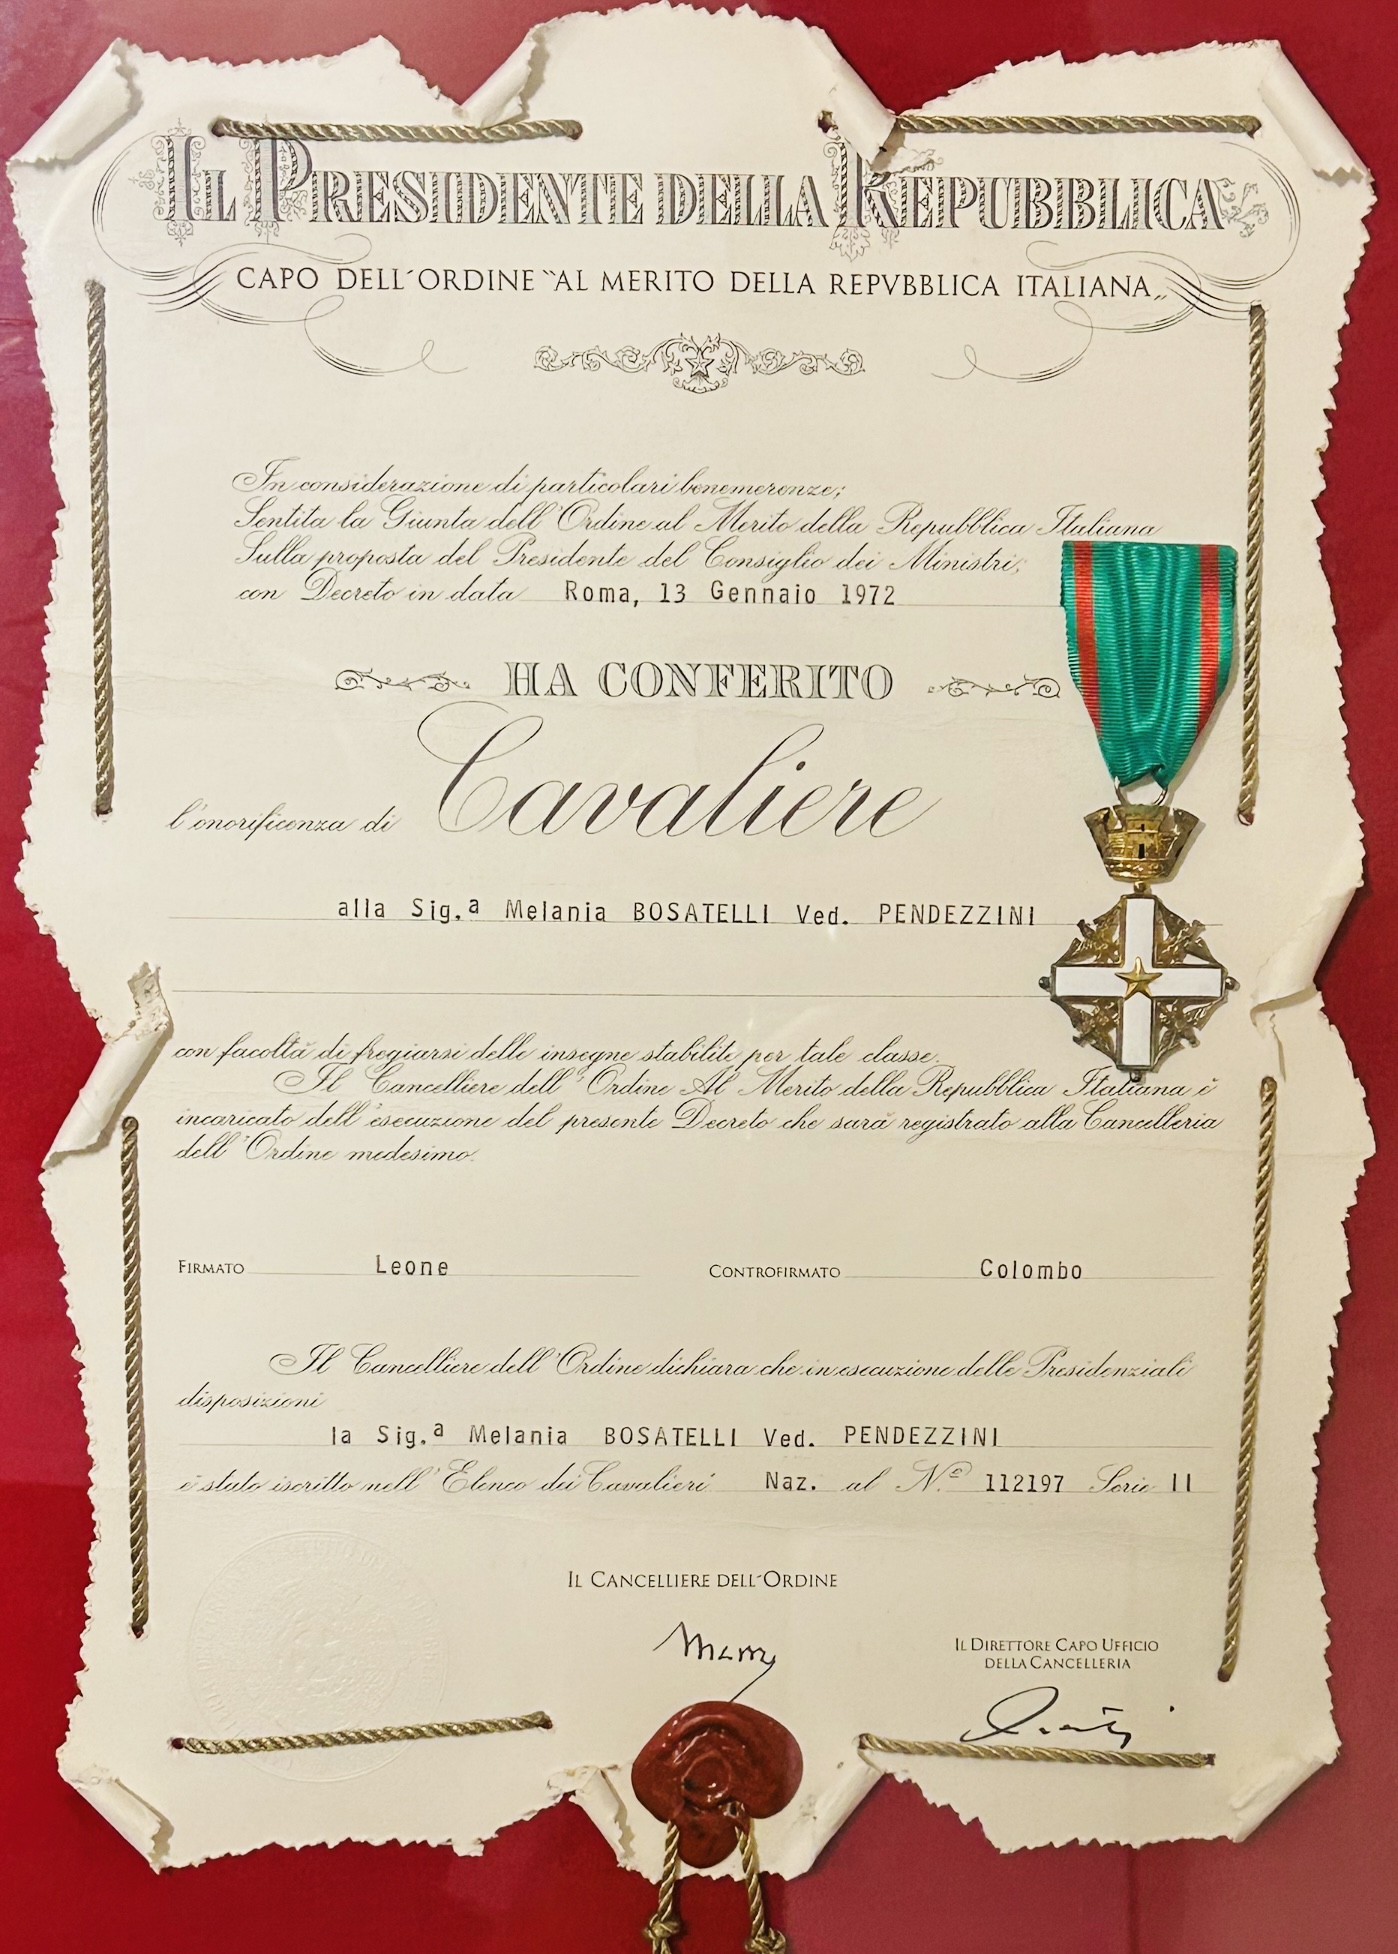 IL PRESIDENTE DELLA REPUBBLICA
CAPO DELL'ORDINE "AL MERITO DELLA REPVBBLICA ITALIANA"
In considerazione di particolari benemerenze;
Sentita la Giunta dell'Ordine al Merito della Repubblica Italiana
Sulla proposta del Presidente del Consiglio dei Ministri;
con Decreto in data Roma, 13 Gennaio 1972
HA CONFERITO
l'onorificenza di Cavaliere
alla Sig.a Melania BOSATELLI Ved. PENDEZZINI
con facoltà di fregiarsi delle insegne stabilite per tale classe.
Il Cancelliere dell'Ordine Al Merito della Repubblica Italiana è
incaricato dell'esecuzione del presente Decreto che sarà registrato alla Cancelleria
dell'Ordine medesimo.
FIRMATO Leone CONTROFIRMATO Colombo
Il Cancelliere dell'Ordine dichiara che in esecuzione delle Presidenziali
disposizioni
la Sig.a Melania BOSATELLI Ved. PENDEZZINI
è stato iscritto nell'Elenco dei Cavalieri Naz. al N.o 112197 Serie II
IL CANCELLIERE DELL'ORDINE
IL DIRETTORE CAPO UFFICIO
DELLA CANCELLERIA